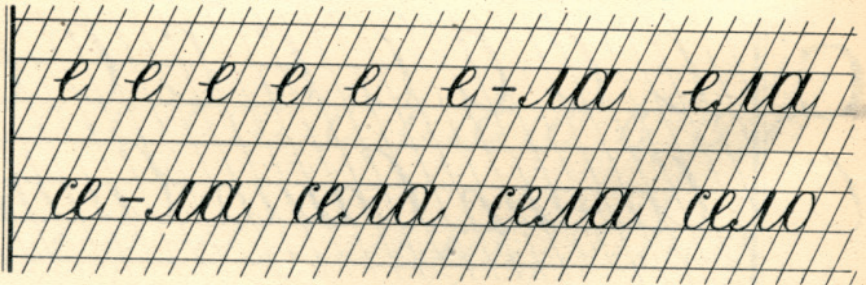 е е е е е е-ла ела
се-ла села села село